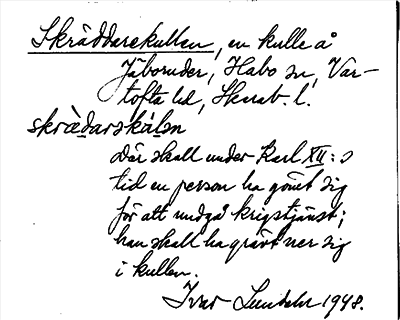 Skräddarekullen, en kulle å
Jäboruder, Habo sn, Var-
tofta hd, Skarab. l.
skrädarskàlsn
Där skall under Karl XII:s
tid en person ha gömt sig
för att undgå krigstjänst;
han skall ha grävt ner sig
i kullen.
Ivar Lundahl 1948.